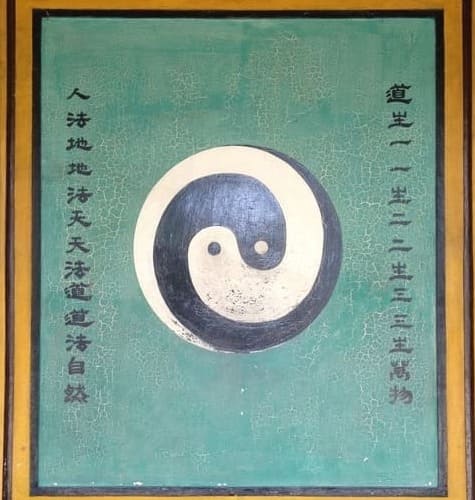 道生一一生二二生三三生萬物
人法地地法天天法道道法自然